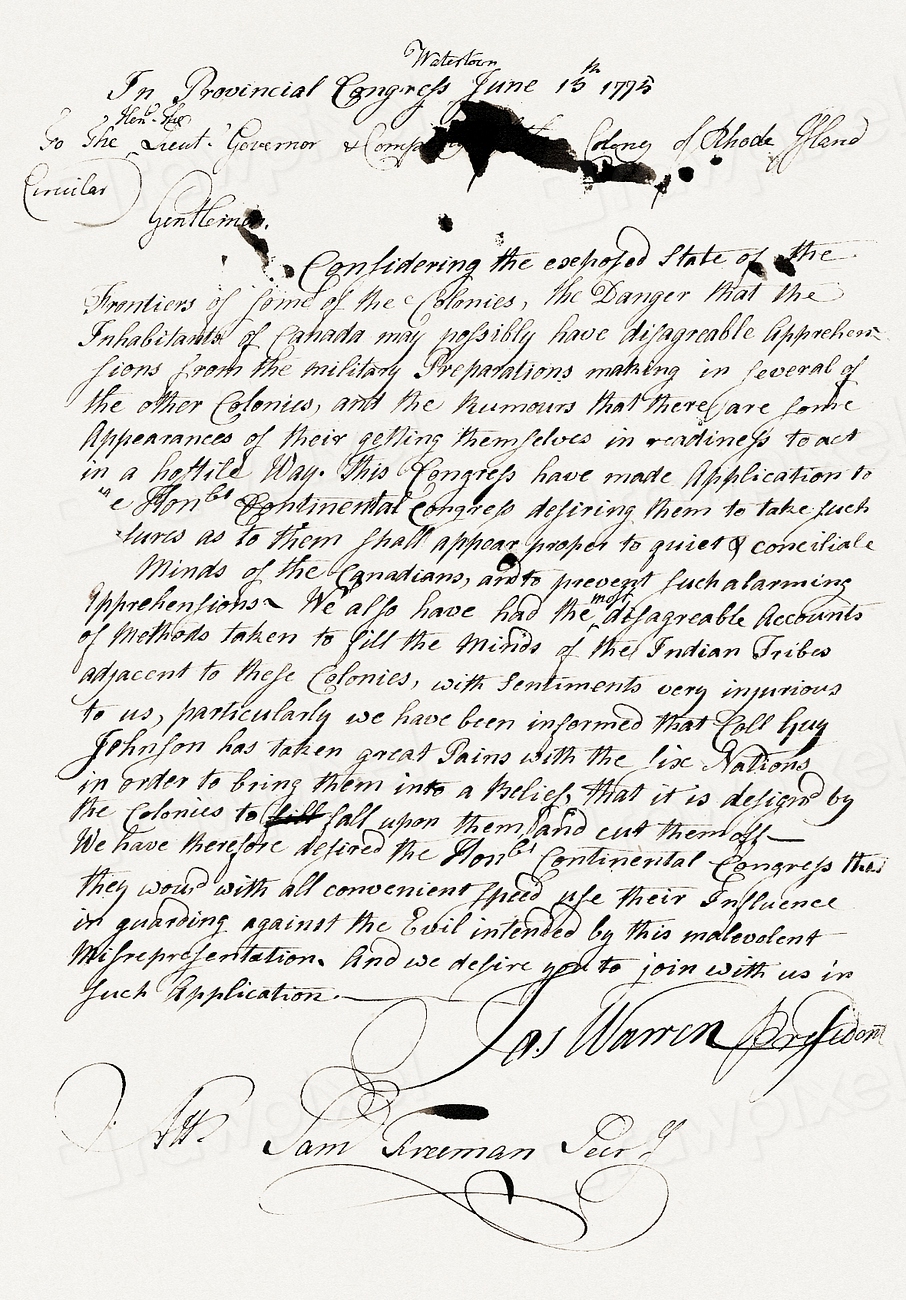 Watertown
In Provincial Congress June 13th 1775
Honl. The
To The Lieut. Governor & Compa Colony of Rhode Island
Circular
Gentlemen.
Considering the exposed State of the
Frontiers of some of the Colonies, the Danger that the
Inhabitants of Canada may possibly have disagreable Apprehen-
sions from the military Preparations making in several of
the other Colonies, and the Rumours that there are some
Appearances of their getting themselves in readiness to act
in a hostile Way. This Congress have made Application to
e Honble Continental Congress desiring them to take such
sures as to them shall appear proper to quiet & conciliate
Minds of the Canadians, and to prevent such alarming
Apprehensions~ We also have had the most disagreable Accounts
of Methods taken to fill the Minds of the Indian Tribes
adjacent to these Colonies, with Sentiments very injurious
to us, particularly we have been informed that Coll Guy
Johnson has taken great Pains with the six Nations
in order to bring them into a Belief, that it is design'd by
the Colonies to fall upon them, and cut them off—
We have therefore desired the Honble Continental Congress that
they wou'd with all convenient Speed use their Influence
in guarding against the Evil intended by this malevolent
Misrepresentation. And we desire you to join with us in
such Application.—
Jas Warren President
Attt
Saml Freeman Secry
rawpixel